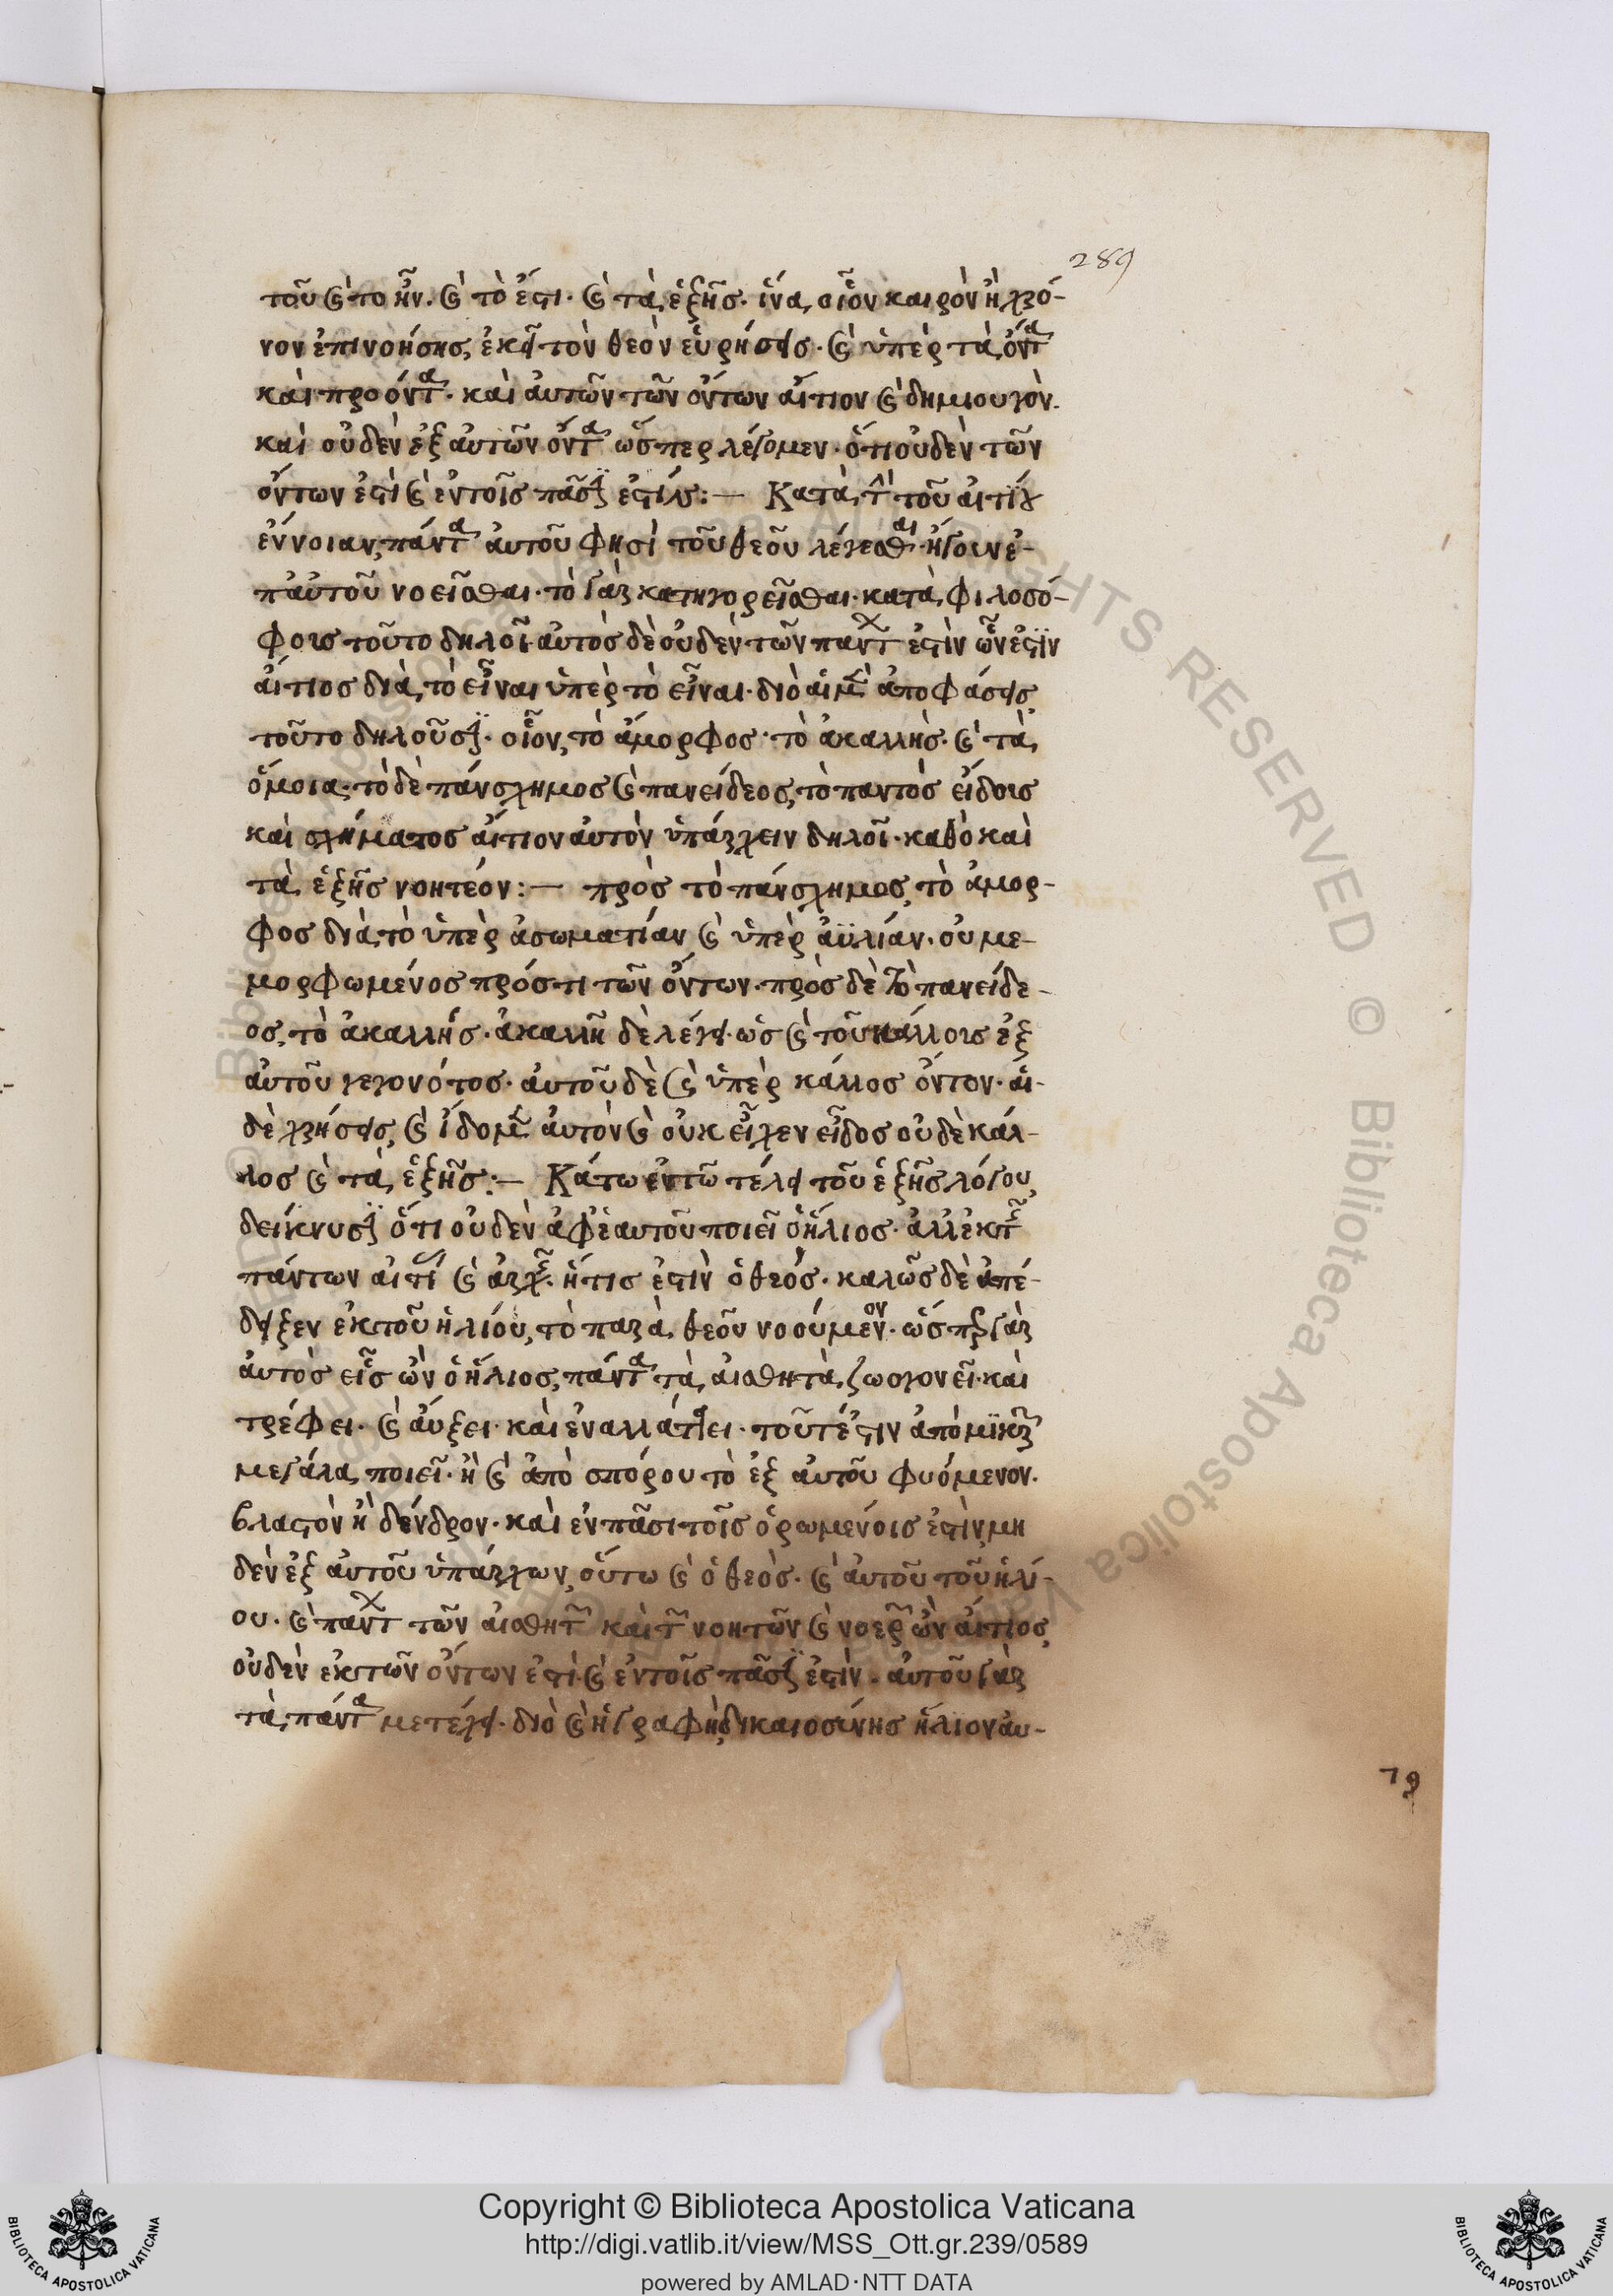 289
τοῦ καὶ το ἦν. καὶ τὸ ἔστι. καὶ τὰ ἑξῆς. ἵνα οἷον καιρὸν ἢ χρό-
νον ἐπινοήσης, ἐκεῖ τὸν θεὸν εὑρήσεις. καὶ ὑπὲρ τὰ ὄντα
καὶ προόντα. καὶ αὐτῶν τῶν ὄντων αἴτιον καὶ δημιουργόν.
καὶ οὐδὲν ἐξ αὐτῶν ὄντα ὥσπερ λέγομεν. ὅτι οὐδὲν τῶν
ὄντων ἐστὶ καὶ ἐν τοῖς πᾶσιν ἐστίν:— Κατὰ τὴν τοῦ αἰτίου
ἔννοιαν, πάντα αὐτοῦ φησὶ τοῦ θεοῦ λέγεσθαι ἤγουν ἐ-
π αὐτοῦ νοεῖσθαι. τὸ γὰρ κατηγορεῖσθαι. κατὰ φιλοσό-
φους τοῦτο δηλοῖ. αὐτὸς δὲ οὐδὲν τῶν πάντων ἐστὶν ὧν ἐστὶν
αἴτιος διὰ τὸ εἶναι ὑπὲρ τὸ εἶναι. διὸ αἱ μὲν ἀποφάσεις,
τοῦτο δηλοῦσιν. οἷον, τὸ ἄμορφος. τὸ ἀκαλλὴς. καὶ τὰ
ὅμοια. τὸ δὲ πάνσχημος καὶ πανείδεος, τὸ παντὸς εἴδους
καὶ σχήματος αἴτιον αὐτὸν ὑπάρχειν δηλοῖ. καθὸ καὶ
τὰ ἑξῆς νοητέον:— πρὸς τὸ πάνσχημος, τὸ ἄμορ-
φος διὰ τὸ ὑπὲρ ἀσωματίαν καὶ ὑπὲρ ἀϋλίαν. οὐ με-
μορφωμένος πρός τι τῶν ὄντων. πρὸς δὲ τὸ πανείδε-
ος, τὸ ἀκαλλής. ἀκαλλῆ δὲ λέγει. ὡς καὶ τοῦ κάλλους ἐξ
αὐτοῦ γεγονότος. αὐτοῦ δὲ καὶ ὑπὲρ κάλλος ὄντον. αἱ-
δὲ χρήσεις, καὶ ἴδομεν αὐτὸν καὶ οὐκ εἶχεν εἶδος οὐδὲ κάλ-
λος καὶ τὰ ἑξῆς:— Κάτω ἐν τῶ τέλει τοῦ ἑξῆς λόγου,
δείκνυσιν ὅτι οὐδὲν ἀφ ἑαυτοῦ ποιεῖ ὁ ἥλιος. ἀλλ ἐκ τῆς
πάντων αἰτίας καὶ ἀρχῆς. ἥτις ἐστὶν ὁ θεός. καλῶς δὲ ἀπέ-
δειξεν ἐκ τοῦ ἡλίου, τὸ παρὰ θεοῦ νοούμενον. ὥσπερ γὰρ
αὐτὸς εἷς ὢν ὁ ἥλιος, πάντα τὰ αἰσθητὰ ζωογονεῖ. καὶ
τρέφει. καὶ αὔξει. καὶ ἐναλλάττει. τοῦτέστιν ἀπὸ μϊκρῶν
μεγάλα ποιεῖ. ἢ καὶ ἀπὸ σπόρου τὸ ἐξ αὐτοῦ φυόμενον.
βλαστὸν ἢ δένδρον. καὶ ἐν πᾶσι τοῖς ὁρωμένοις ἐστὶν, μη
δὲν ἐξ αὐτοῦ ὑπάρχων, οὕτω καὶ ὁ θεὸς. καὶ αὐτοῦ τοῦ ἡλί-
ου. καὶ πάντων τῶν αἰσθητῶν καὶ τῶν νοητῶν καὶ νοερῶν ὢν αἴτιος,
οὐδὲν ἐκ τῶν ὄντων ἐστὶ. καὶ ἐν τοῖς πᾶσιν ἐστὶν. αὐτοῦ γὰρ
τὰ πάντα μετέχει. διὸ καὶ ἡ γραφὴ, δικαιοσύνης ἥλιον αὐ-
Copyright © Biblioteca Apostolica Vaticana
http://digi.vatlib.it/view/MSS_Ott.gr.239/0589
powered by AMLAD·NTT DATA